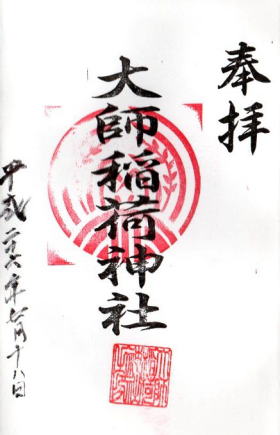 奉拝
大師稲荷神社
平成二十六年七月十八日